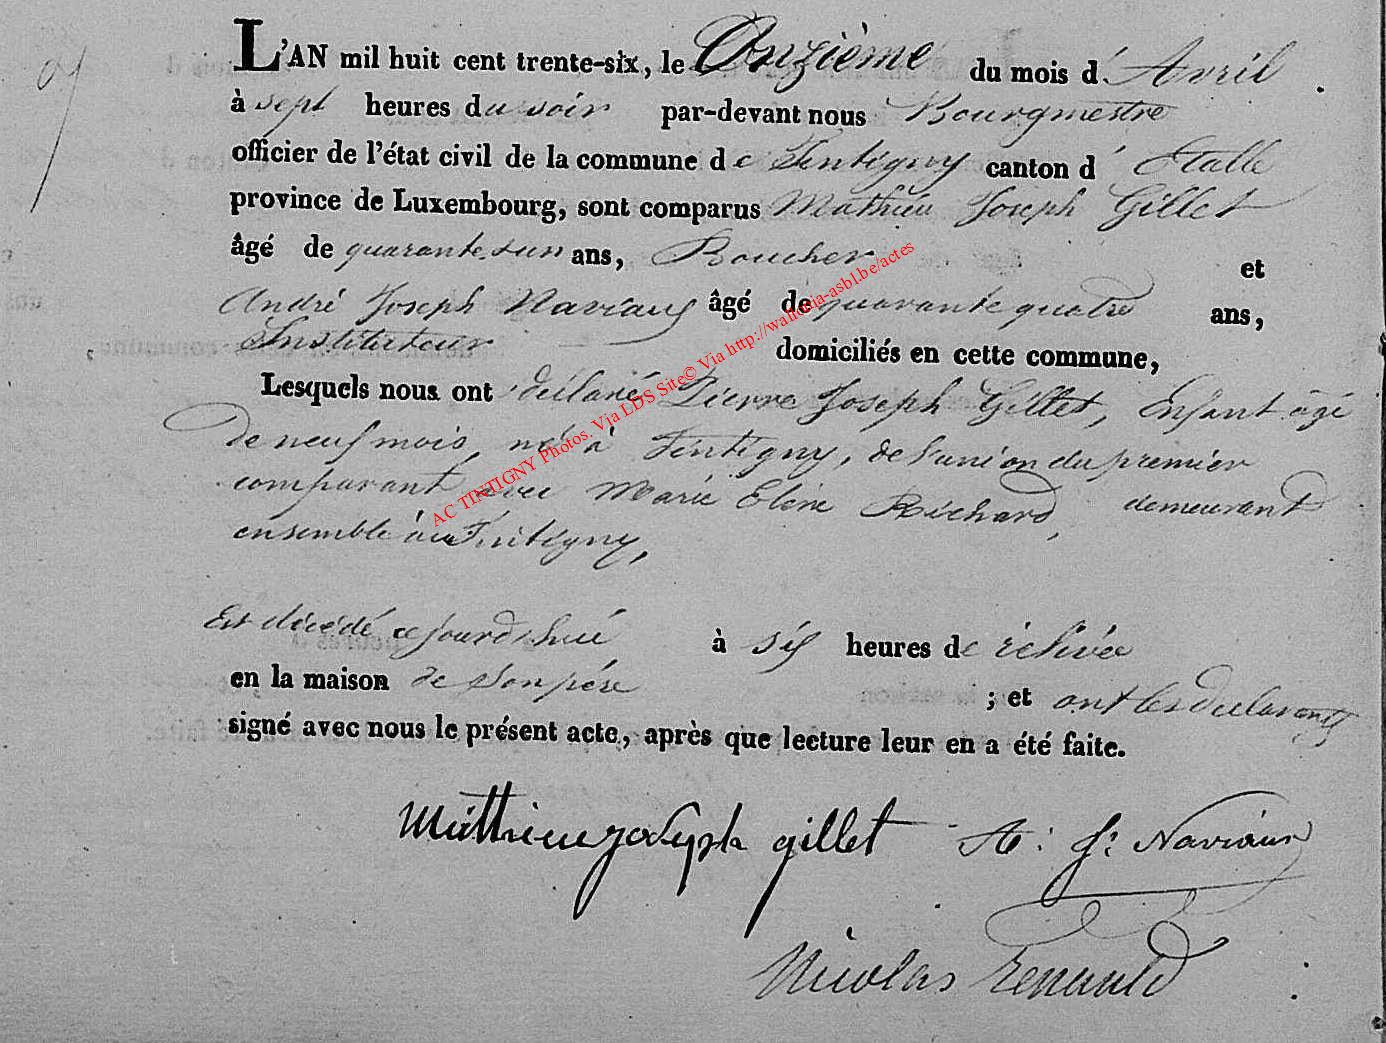 9
L'AN mil huit cent trente-six, le Onzième du mois d'Avril
à sept heures du soir par-devant nous Bourgmestre
officier de l'état civil de la commune de Tintigny canton d'Etalle
province de Luxembourg, sont comparus Mathieu Joseph Gillet
âgé de quarante-un ans, Boucher et
André Joseph Naviaux âgé de quarante quatre ans,
Instituteur domiciliés en cette commune,
Lesquels nous ont déclaré Pierre Joseph Gillet, Enfant âgé
de neuf mois, né à Tintigny, de l'union du premier
comparant avec Marie Elène Richard, demeurant
ensemble à Tintigny,
Est décédé cejourd'hui à six heures de rélévée
en la maison de son père ; et ont les déclarants
signé avec nous le présent acte, après que lecture leur en a été faite.
Matthieu joseph gillet A: J: Naviaux
Nicolas Renauld
AC TINTIGNY Photos. Via LDS Site© Via http://wallonia-asbl.be/actes